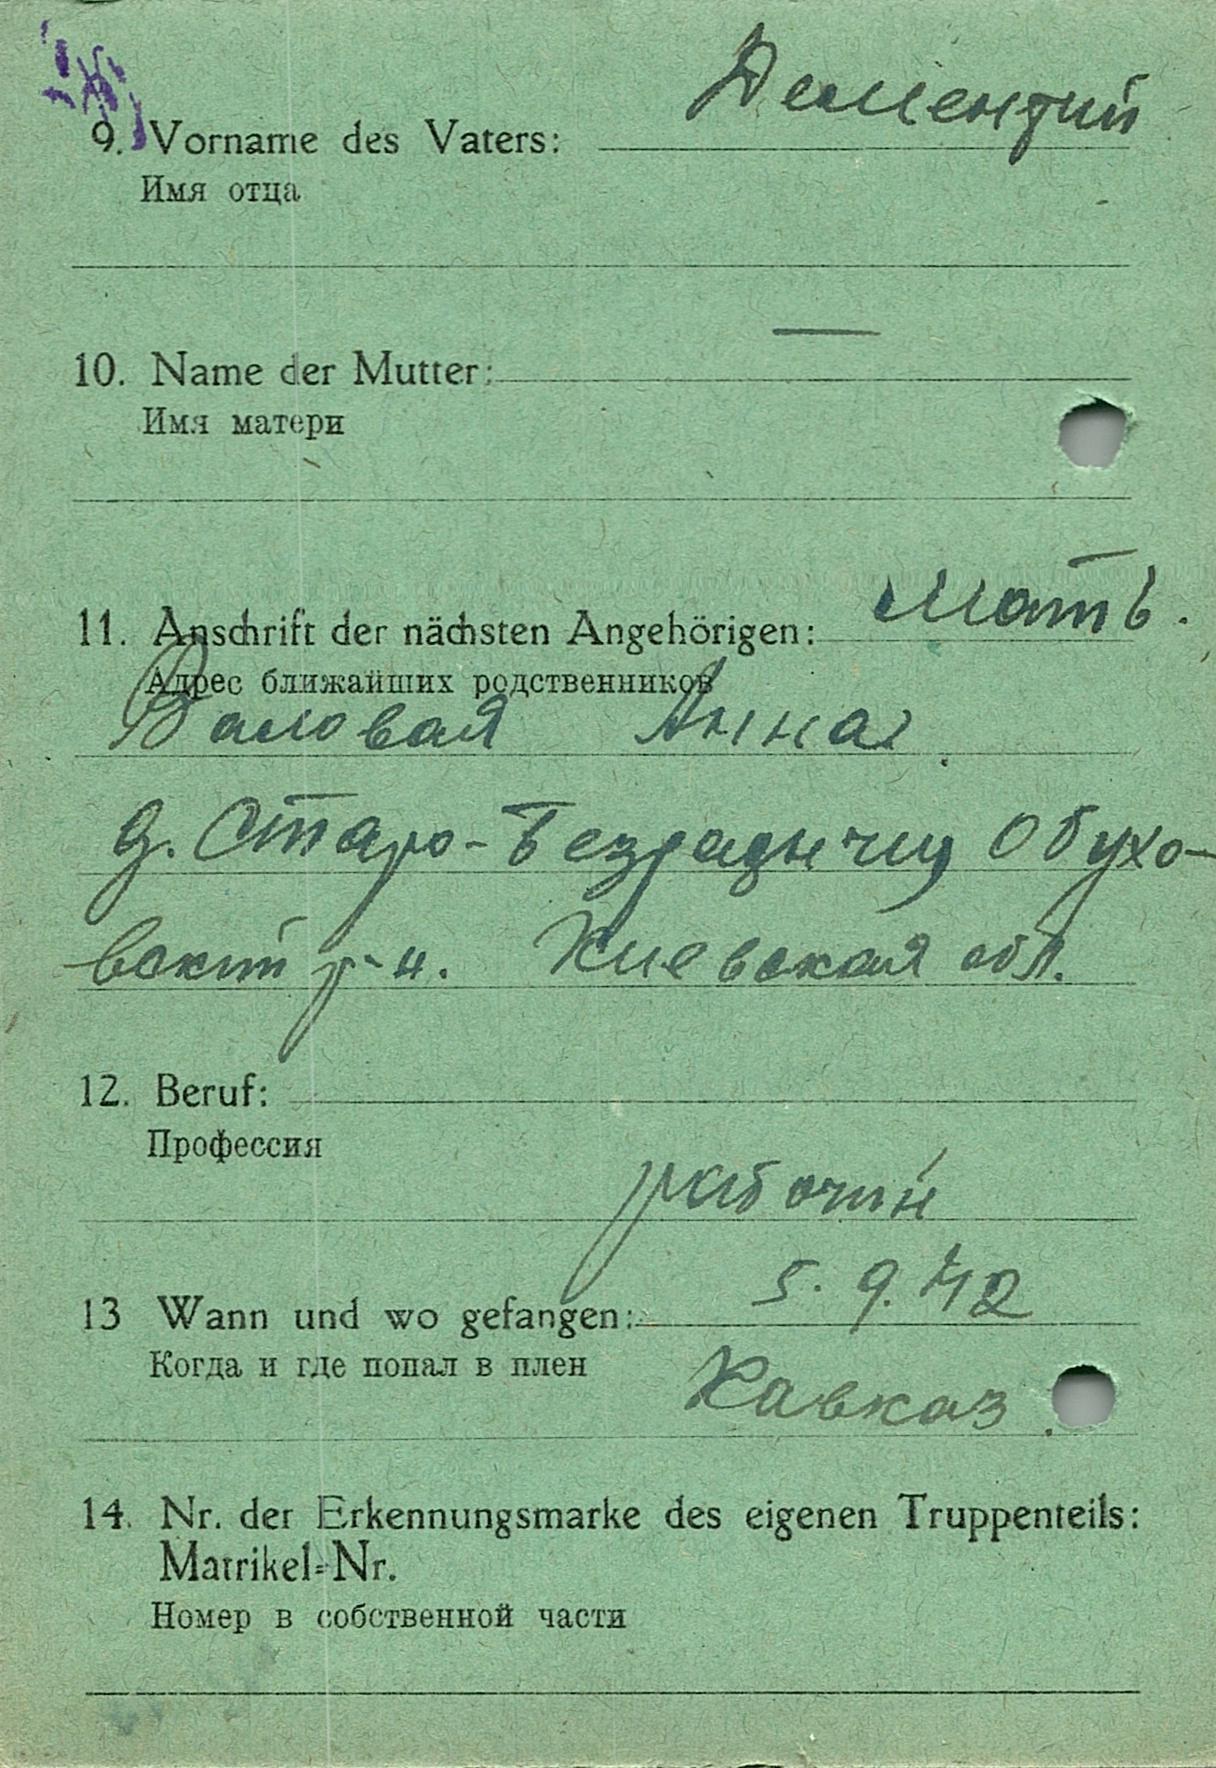 9. Vorname des Vaters: Дементий
Имя отца
10. Name der Mutter: —
Имя матери
11. Anschrift der nächsten Angehörigen: Мать.
Адрес ближайших родственников
Валовая Анна
д. Старо-Безрадычи Обухо-
вский р-н. Киевская обл.
12. Beruf:
Профессия
рабочий
13 Wann und wo gefangen: 5.9.42
Когда и где попал в плен
Кавказ.
14. Nr. der Erkennungsmarke des eigenen Truppenteils:
Matrikel-Nr.
Номер в собственной части